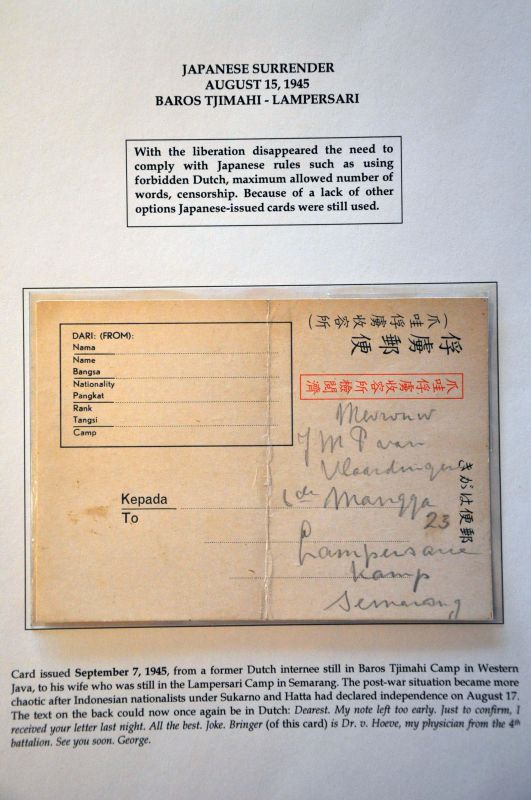 JAPANESE SURRENDER
AUGUST 15, 1945
BAROS TJIMAHI - LAMPERSARI
With the liberation disappeared the need to
comply with Japanese rules such as using
forbidden Dutch, maximum allowed number of
words, censorship. Because of a lack of other
options Japanese-issued cards were still used.
DARI: (FROM):
Nama
Name
Bangsa
Nationality
Pangkat
Rank
Tangsi
Camp
(爪哇俘虜收容所)
俘虜郵便
爪哇俘虜收容所檢閲濟
郵便はがき
Kepada
To
Mevrouw
J M P van
Vlaardingen
6de Mangga
23
Lampersarie
Kamp
Semarang
Card issued September 7, 1945, from a former Dutch internee still in Baros Tjimahi Camp in Western
Java, to his wife who was still in the Lampersari Camp in Semarang. The post-war situation became more
chaotic after Indonesian nationalists under Sukarno and Hatta had declared independence on August 17.
The text on the back could now once again be in Dutch: Dearest. My note left too early. Just to confirm, I
received your letter last night. All the best. Joke. Bringer (of this card) is Dr. v. Hoeve, my physician from the 4th
battalion. See you soon. George.